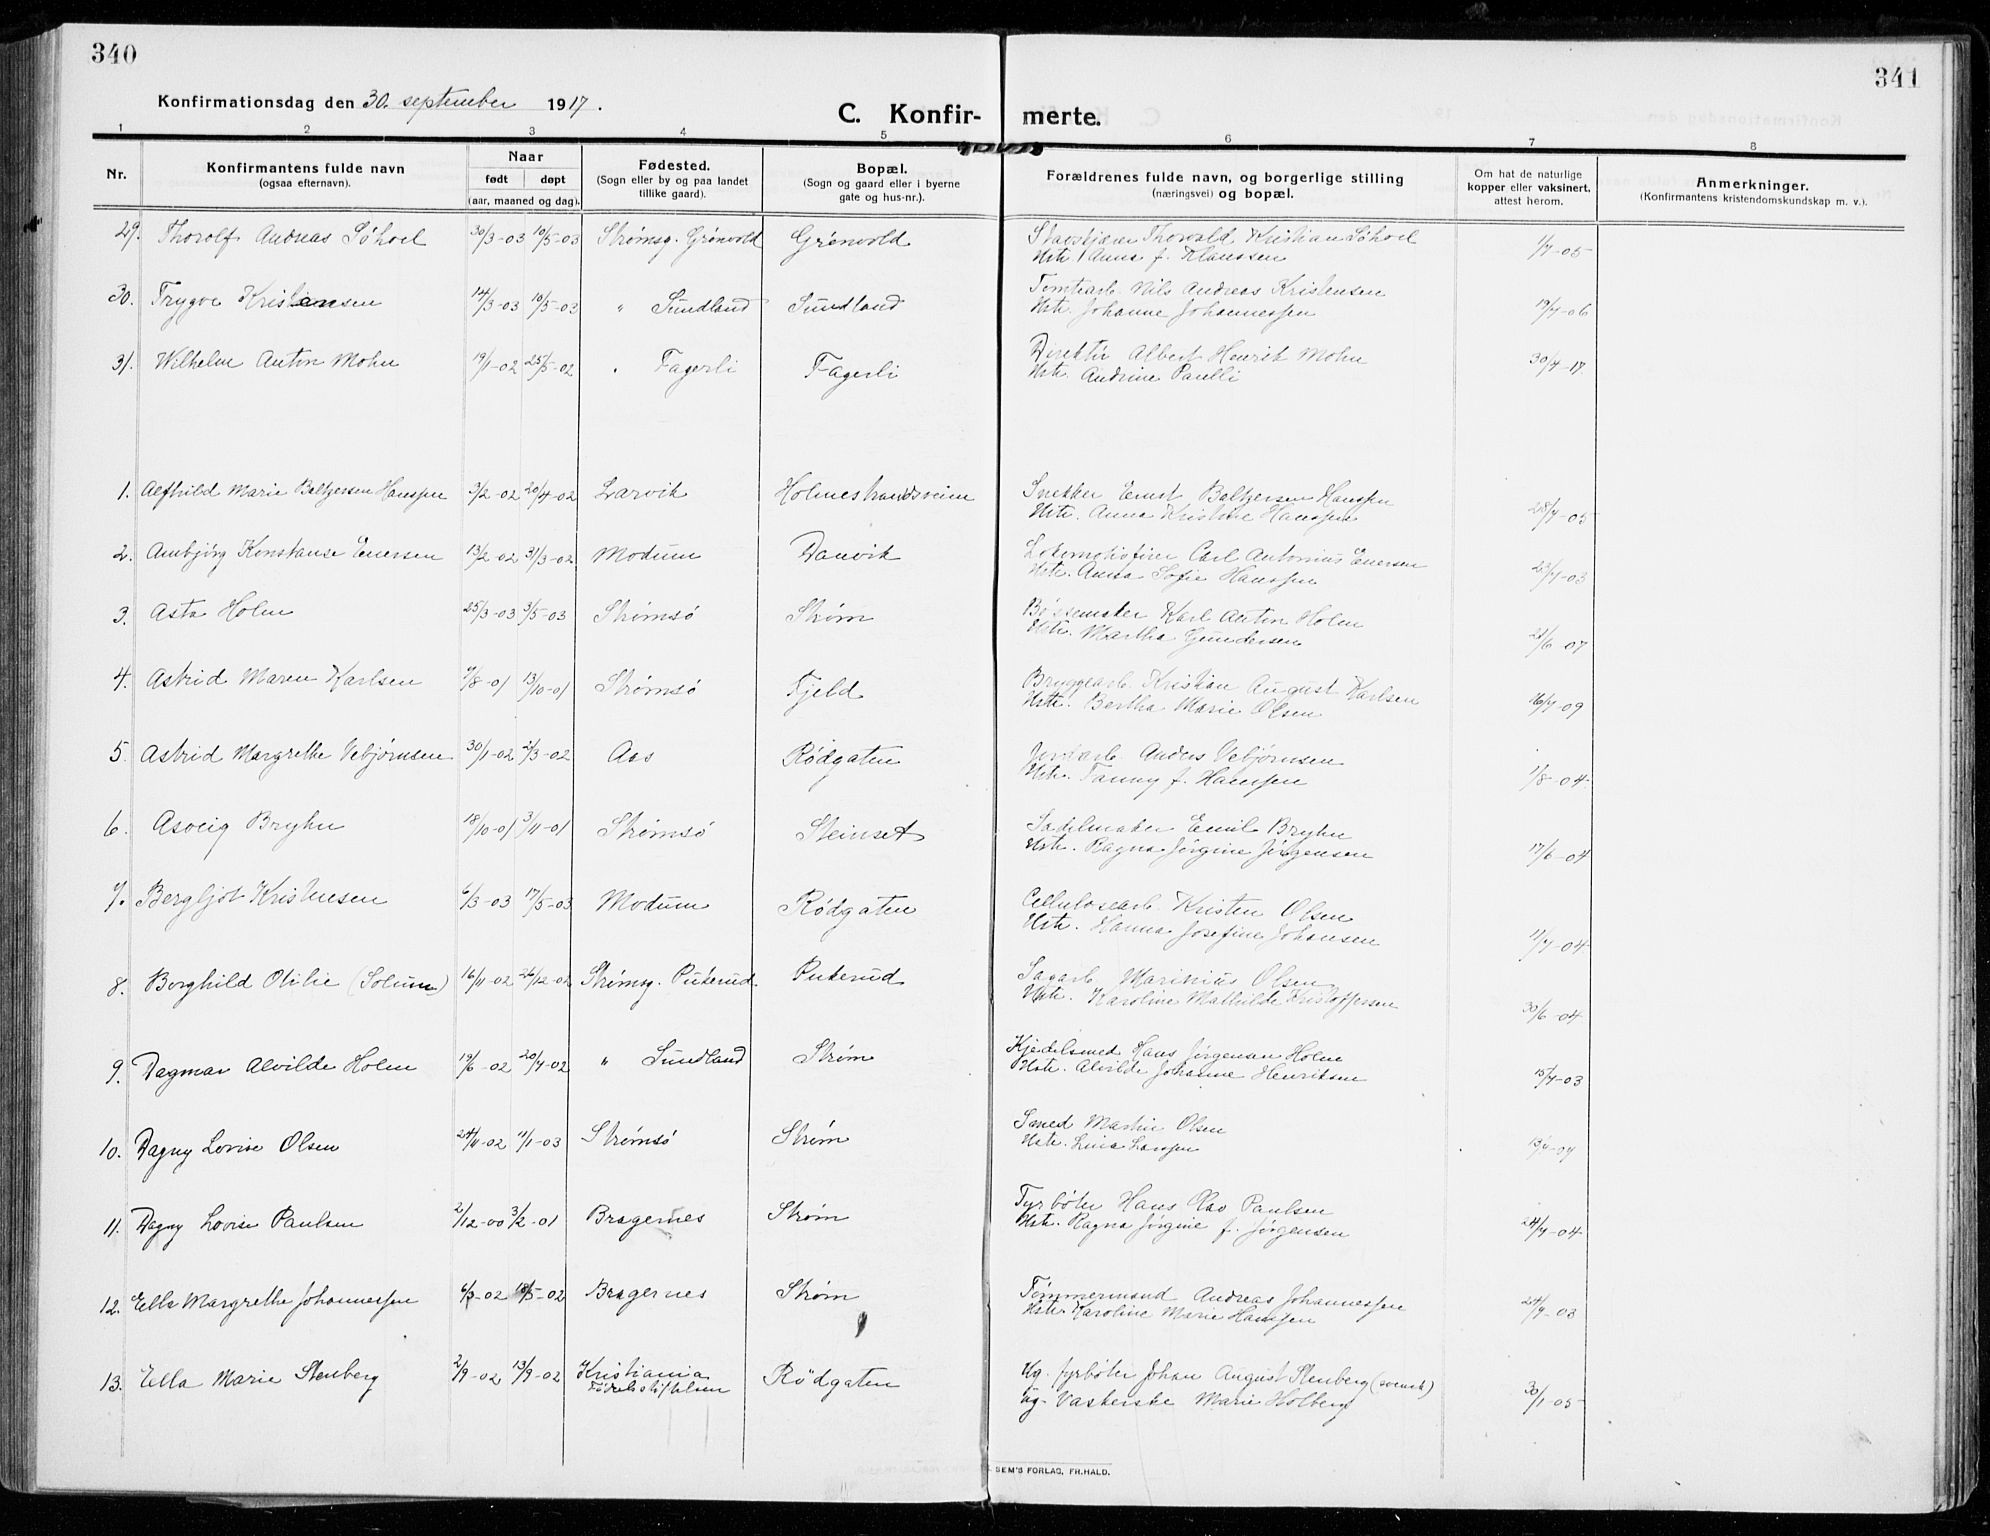 340
341
Konfirmationsdag den 30. september 1917.
C. Konfir- merte.
1 2 3 4 5 6 7 8
Nr. Konfirmantens fulde navn (ogsaa efternavn). Naar født døpt (aar, maaned og dag). Fødested. (Sogn eller by og paa landet tillike gaard). Bopæl. (Sogn og gaard eller i byerne gate og hus-nr.). Forældrenes fulde navn, og borgerlige stilling (næringsvei) og bopæl. Om hat de naturlige kopper eller vaksinert, attest herom. Anmerkninger. (Konfirmantens kristendomskundskap m. v.).
29. Thorolf Andreas Söhoel 30/3-03 10/5-03 Strømsg. Grönvold Grönvold Thorvald Kristian Söhoel 1/7-05
Hstr. Anna f. Klaussen
30. Trygve Kristiansen 14/3-03 10/5-03 " Sundland Sundland Tomtearb. Nils Andreas Kristensen 19/7-06
Hstr. Johanne Johannessen
31. Wilhelm Anton Mohn 19/1-02 25/5-02 " Fagerli Fagerli Direktör Albert Henrik Mohn 30/7-17.
Hstr. Andrine Paulli
1. Alfhild Marie Baltzersen Hanssen 3/2-02 20/4-02 Larvik Holmestrandsveien Snekker Ernst Baltzersen Hanssen 28/7-05
Hstr. Anna Kristine Hanssen
2. Ambjörg Konstanse Enersen 13/2-02 31/3-02 Modum Danvik Lokomotivfører Carl Antonius Enersen 23/7-03
Hstr. Anna Sofie Hanssen
3. Asta Holm 25/3-03 3/5-03 Strømsö Strøm Bøssemaker Karl Anton Holm 28/6-07
Hstr. Martha Gundersen
4. Astrid Maren Karlsen 9/8-01 13/10-01 Strømsö Fjeld Bryggearb. Kristian August Karlsen 16/7-09
Hstr. Bertha Marie Olsen
5. Astrid Margrethe Vebjørnsen 30/1-02 2/3-02 Aas Rødgaten Jernarb. Anders Vebjørnsen 1/8-04
Hstr. Fanny f. Hanssen
6. Asveig Bryhn 18/10-01 3/11-01 Strømsö Steinset Sadelmaker Emil Bryhn 17/6-04
Hstr. Ragna Jörgine Jörgensen
7. Bergljot Kristensen 6/3-03 17/5-03 Modum Rødgaten Cellulosearb. Kristen Olsen 11/7-04
Hstr. Hanna Josefine Johansen
8. Borghild Otilie (Solum) 16/11-02 26/12-02 Strømsg. Pukerud. Pukerud Sagarb. Marinius Olsen 30/6-04
Hstr. Karoline Mathilde Kristoffersen
9. Dagmar Alvilde Holm 19/6-02 20/7-02 " Sundland Strøm Kjedelsmed Hans Jörgensen Holm 15/7-03
Hstr. Alvilde Johanne Henriksen
10. Dagny Lovise Olsen 24/11-02 11/1-03 Strømsö Strøm Smed Martin Olsen
Hstr. Lina Larssen
11. Dagny Lovise Paulsen 2/12-00 3/2-01 Bragernes Strøm Fyrböter Hans Olav Paulsen 24/7-04
Hstr. Ragna Jörgine f. Jørgensen
12. Ella Margrethe Johannessen 6/3-02 18/5-02 Bragernes Strøm Tømmermand Andreas Johannessen 24/7-03
Hstr. Karoline Marie Hanssen
13. Ella Marie Stenberg 2/9-02 13/9-02 Kristiania Fødselsstiftelsen Rödgaten Ug. fyrböter Johan August Stenberg (svensk) 30/1-05
Ug. Vaskerske Marie Holberg
SEM'S FORLAG, FR.HALD.